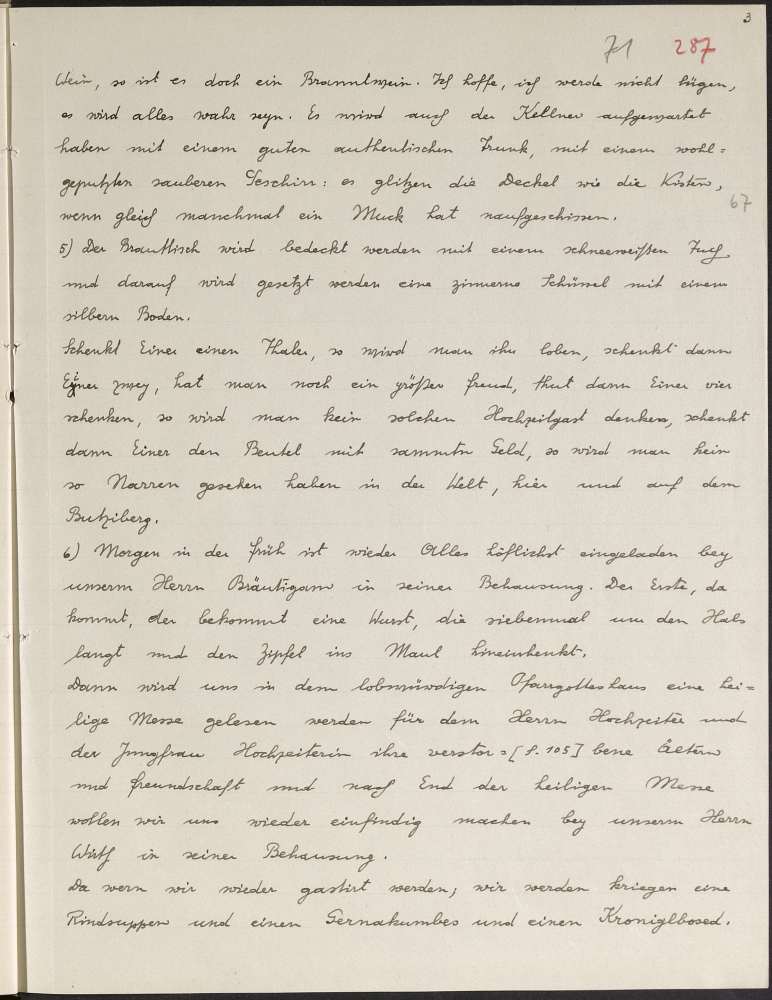 3
71 287
Wein, so ist es doch ein Branntwein. Ich hoffe, ich werde nicht lügen,
es wird alles wahr seyn. Es wird auch der Kellner aufgewartet
haben mit einem guten authentischen Trunk, mit einem wohl=
geputzten sauberen Geschirr: es glitzen die Deckel wie die Kisten,
67
wenn gleich manchmal ein Muck hat naufgeschissen.
5) Der Brauttisch wird bedeckt werden mit einem schneeweißen Tuch
und darauf wird gesetzt werden eine zinnerne Schüssel mit einem
silbern Boden.
Schenkt Einer einen Thaler, so wird man ihn loben, schenkt dann
Einer zwey, hat man noch ein größer freud, thut dann Einer vier
schenken, so wird man kein solchen Hochzeitgast denken, schenkt
dann Einer den Beutel mit sammtn Geld, so wird man kein
so Narren gesehen haben in der Welt, hier und auf dem
Butziberg.
6) Morgen in der früh ist wieder Alles höflichst eingeladen bey
unserm Herrn Bräutigam in seiner Behausung. Der Erste, da
kommt, der bekommt eine Wurst, die siebenmal um den Hals
langt und den Zipfel ins Maul hineinhenkt.
Dann wird uns in dem lobwürdigen Pfarrgotteshaus eine hei=
lige Messe gelesen werden für dem Herrn Hochzeiter und
der Jungfrau Hochzeiterin ihre verstor=[S. 105] bene Ältern
und freundschaft und nach End der heiligen Messe
wollen wir uns wieder einfindig machen bey unserm Herrn
Wirth in seiner Behausung.
Da wern wir wieder gastirt werden; wir werden kriegen eine
Rindsuppen und einen Gernakumbes und einen Kroniglbosed.